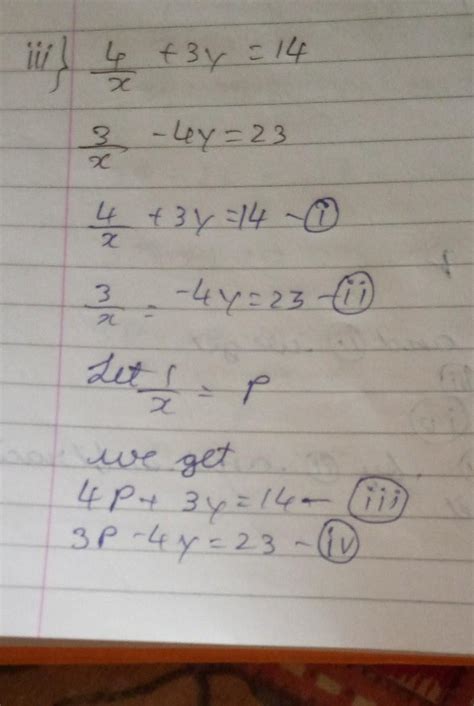 iii} 4/x + 3y = 14
3/x - 4y = 23
4/x + 3y = 14 - (i)
3/x = -4y = 23 - (ii)
Let 1/x = P
we get
4P + 3y = 14 - (iii)
3P - 4y = 23 - (iv)